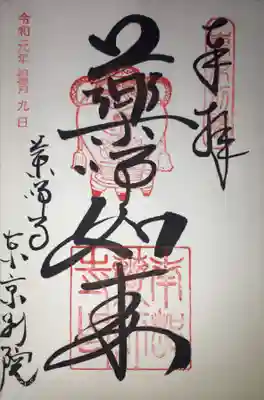 奉拝
薬師如来
薬師寺
東京別院
令和元年 九日